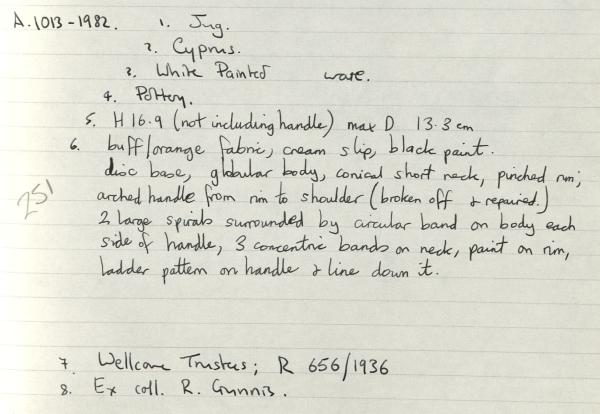 A.1013-1982. 1. Jug.
2. Cyprus.
3. White Painted ware.
4. Pottery.
5. H 16.9 (not including handle) max D 13.3 cm
6. buff/orange fabric, cream slip, black paint.
disc base, globular body, conical short neck, pinched rim;
arched handle from rim to shoulder (broken off & repaired.)
2 large spirals surrounded by circular band on body each
side of handle, 3 concentric bands on neck, paint on rim,
ladder pattern on handle & line down it.
251
7. Wellcome Trustees; R 656/1936
8. Ex coll. R. Gunnis.